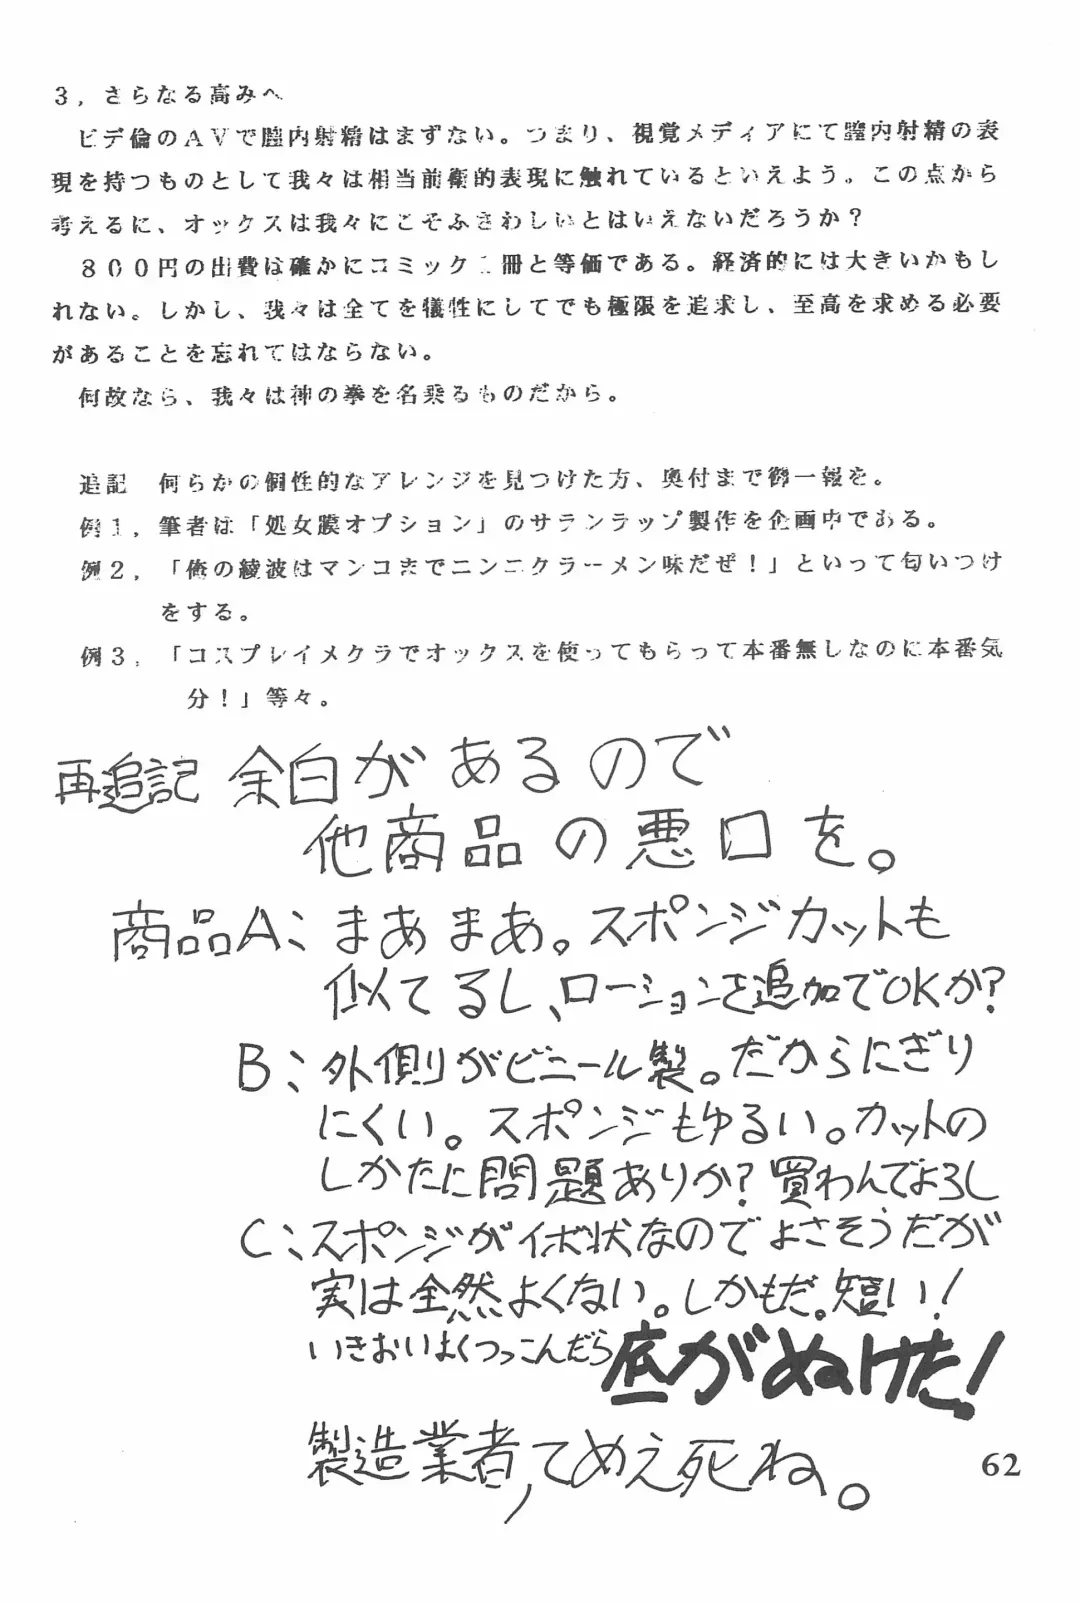 3，さらなる高みへ
ビデ倫のAVで膣内射精はまずない。つまり、視覚メディアにて膣内射精の表
現を持つものとして我々は相当前衛的表現に触れているといえよう。この点から
考えるに、オックスは我々にこそふさわしいとはいえないだろうか？
800円の出費は確かにコミック1冊と等価である。経済的には大きいかもし
れない。しかし、我々は全てを犠牲にしてでも極限を追求し、至高を求める必要
があることを忘れてはならない。
何故なら、我々は神の拳を名乗るものだから。
追記　何らかの個性的なアレンジを見つけた方、奥付まで御一報を。
例1，筆者は「処女膜オプション」のサランラップ製作を企画中である。
例2，「俺の綾波はマンコまでニンニクラーメン味だぜ！」といって匂いつけ
をする。
例3，「コスプレイメクラでオックスを使ってもらって本番無しなのに本番気
分！」等々。
再追記 余白があるので
他商品の悪口を。
商品A：まあまあ。スポンジカットも
似てるし、ローションを追加でOKか？
B：外側がビニール製。だからにぎり
にくい。スポンジもゆるい。カットの
しかたに問題ありか？買わんでよろし
C：スポンジがイボ状なのでよさそうだが
実は全然よくない。しかもだ。短い！
いきおいよくつっこんだら底がぬけた！
製造業者，てめえ死ね。
62